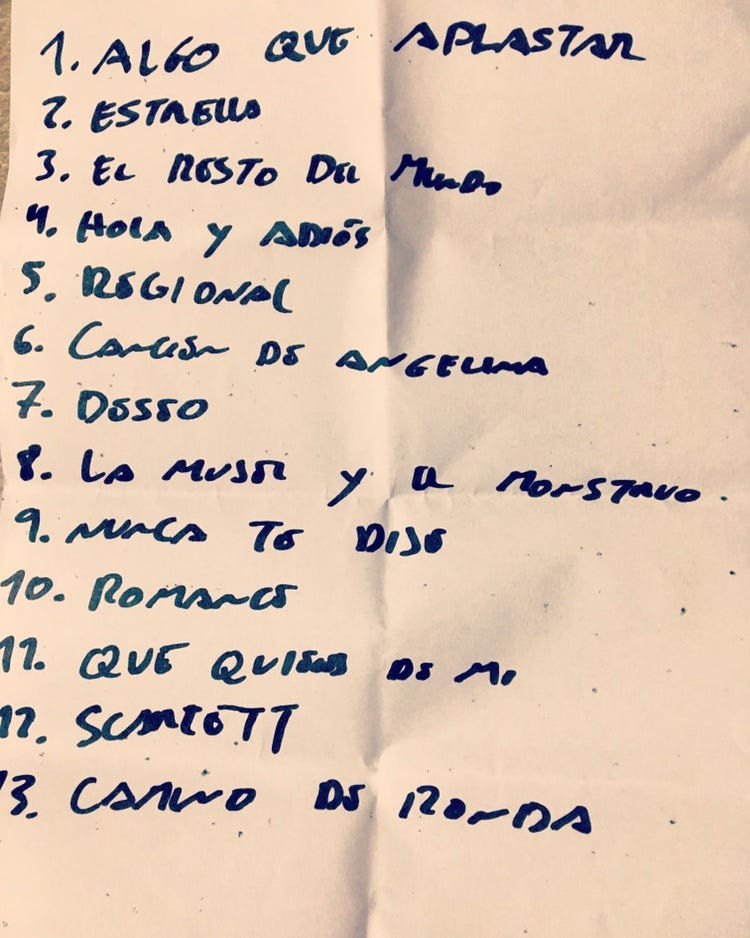 1. ALGO QUE APLASTAR
2. ESTRELLA
3. EL RESTO DEL MUNDO
4. HOLA Y ADIÓS
5. REGIONAL
6. CANCIÓN DE ANGELINA
7. DESEO
8. LA MUJER Y EL MONSTRUO.
9. NUNCA TE DIJE
10. ROMANCE
11. QUE QUIERES DE MI
12. SCARLETT
13. CAMINO DE RONDA